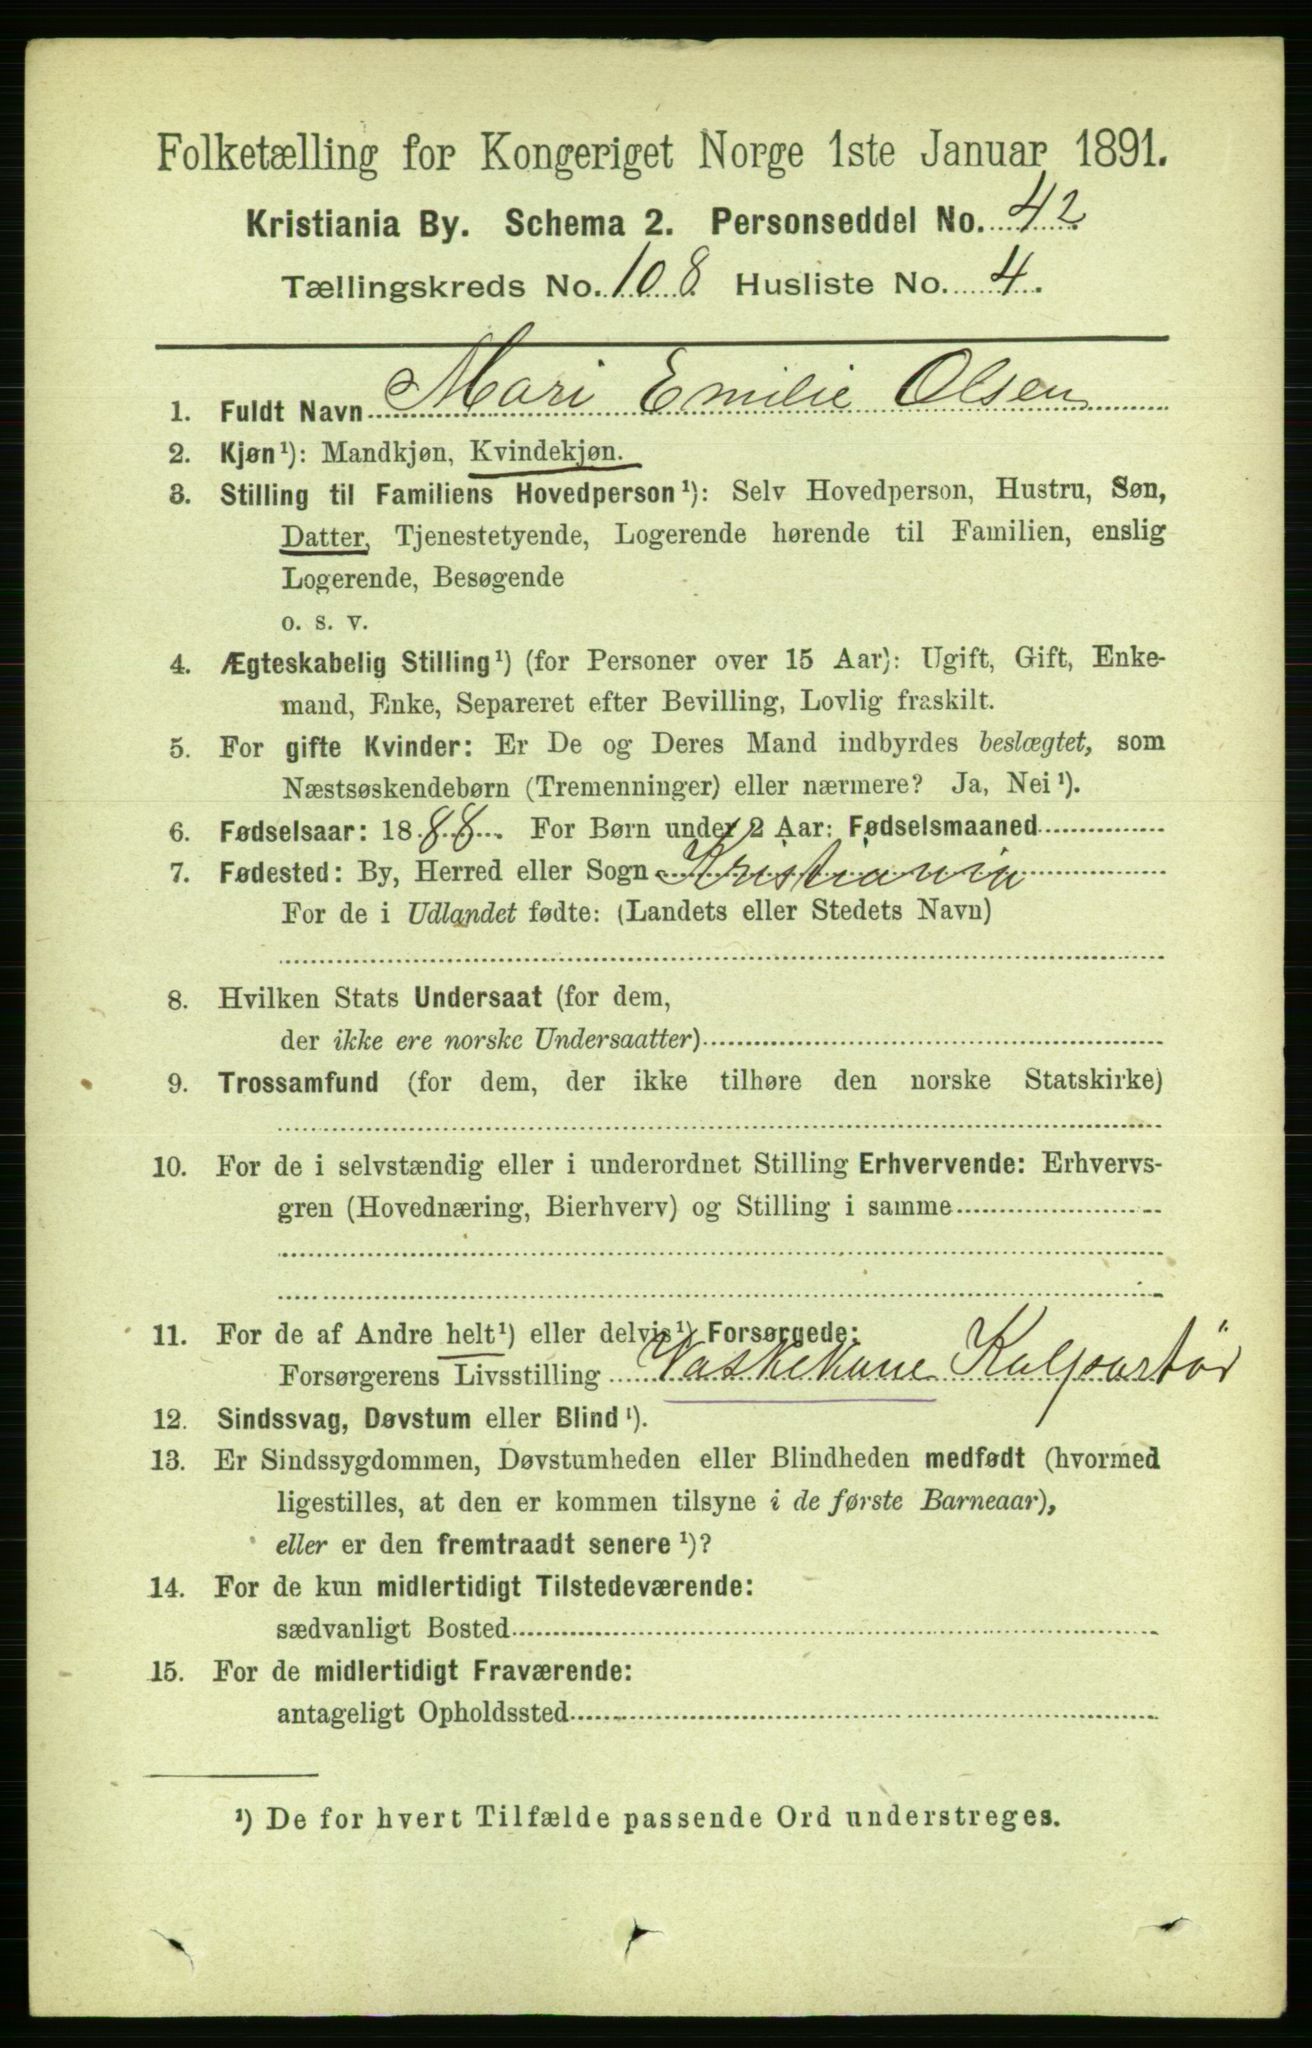 Folketælling for Kongeriget Norge 1ste Januar 1891.
Kristiania By. Schema 2. Personseddel No. 42
Tællingskreds No. 108 Husliste No. 4.
1. Fuldt Navn Mari Emilie Olsen
2. Kjøn¹): Mandkjøn, Kvindekjøn.
3. Stilling til Familiens Hovedperson¹): Selv Hovedperson, Hustru, Søn,
Datter, Tjenestetyende, Logerende hørende til Familien, enslig
Logerende, Besøgende
o. s. v.
4. Ægteskabelig Stilling¹) (for Personer over 15 Aar): Ugift, Gift, Enke-
mand, Enke, Separeret efter Bevilling, Lovlig fraskilt.
5. For gifte Kvinder: Er De og Deres Mand indbyrdes beslægtet, som
Næstsøskendebørn (Tremenninger) eller nærmere? Ja, Nei¹).
6. Fødselsaar: 1888. For Børn under 2 Aar: Fødselsmaaned
7. Fødested: By, Herred eller Sogn Kristiania
For de i Udlandet fødte: (Landets eller Stedets Navn)
8. Hvilken Stats Undersaat (for dem,
der ikke ere norske Undersaatter)
9. Trossamfund (for dem, der ikke tilhøre den norske Statskirke)
10. For de i selvstændig eller i underordnet Stilling Erhvervende: Erhvervs-
gren (Hovednæring, Bierhverv) og Stilling i samme
11. For de af Andre helt¹) eller delvis¹) Forsørgede:
Forsørgerens Livsstilling Vaskekone Kolportør
12. Sindssvag, Døvstum eller Blind¹).
13. Er Sindssygdommen, Døvstumheden eller Blindheden medfødt (hvormed
ligestilles, at den er kommen tilsyne i de første Barneaar),
eller er den fremtraadt senere¹)?
14. For de kun midlertidigt Tilstedeværende:
sædvanligt Bosted
15. For de midlertidigt Fraværende:
antageligt Opholdssted
¹) De for hvert Tilfælde passende Ord understreges.